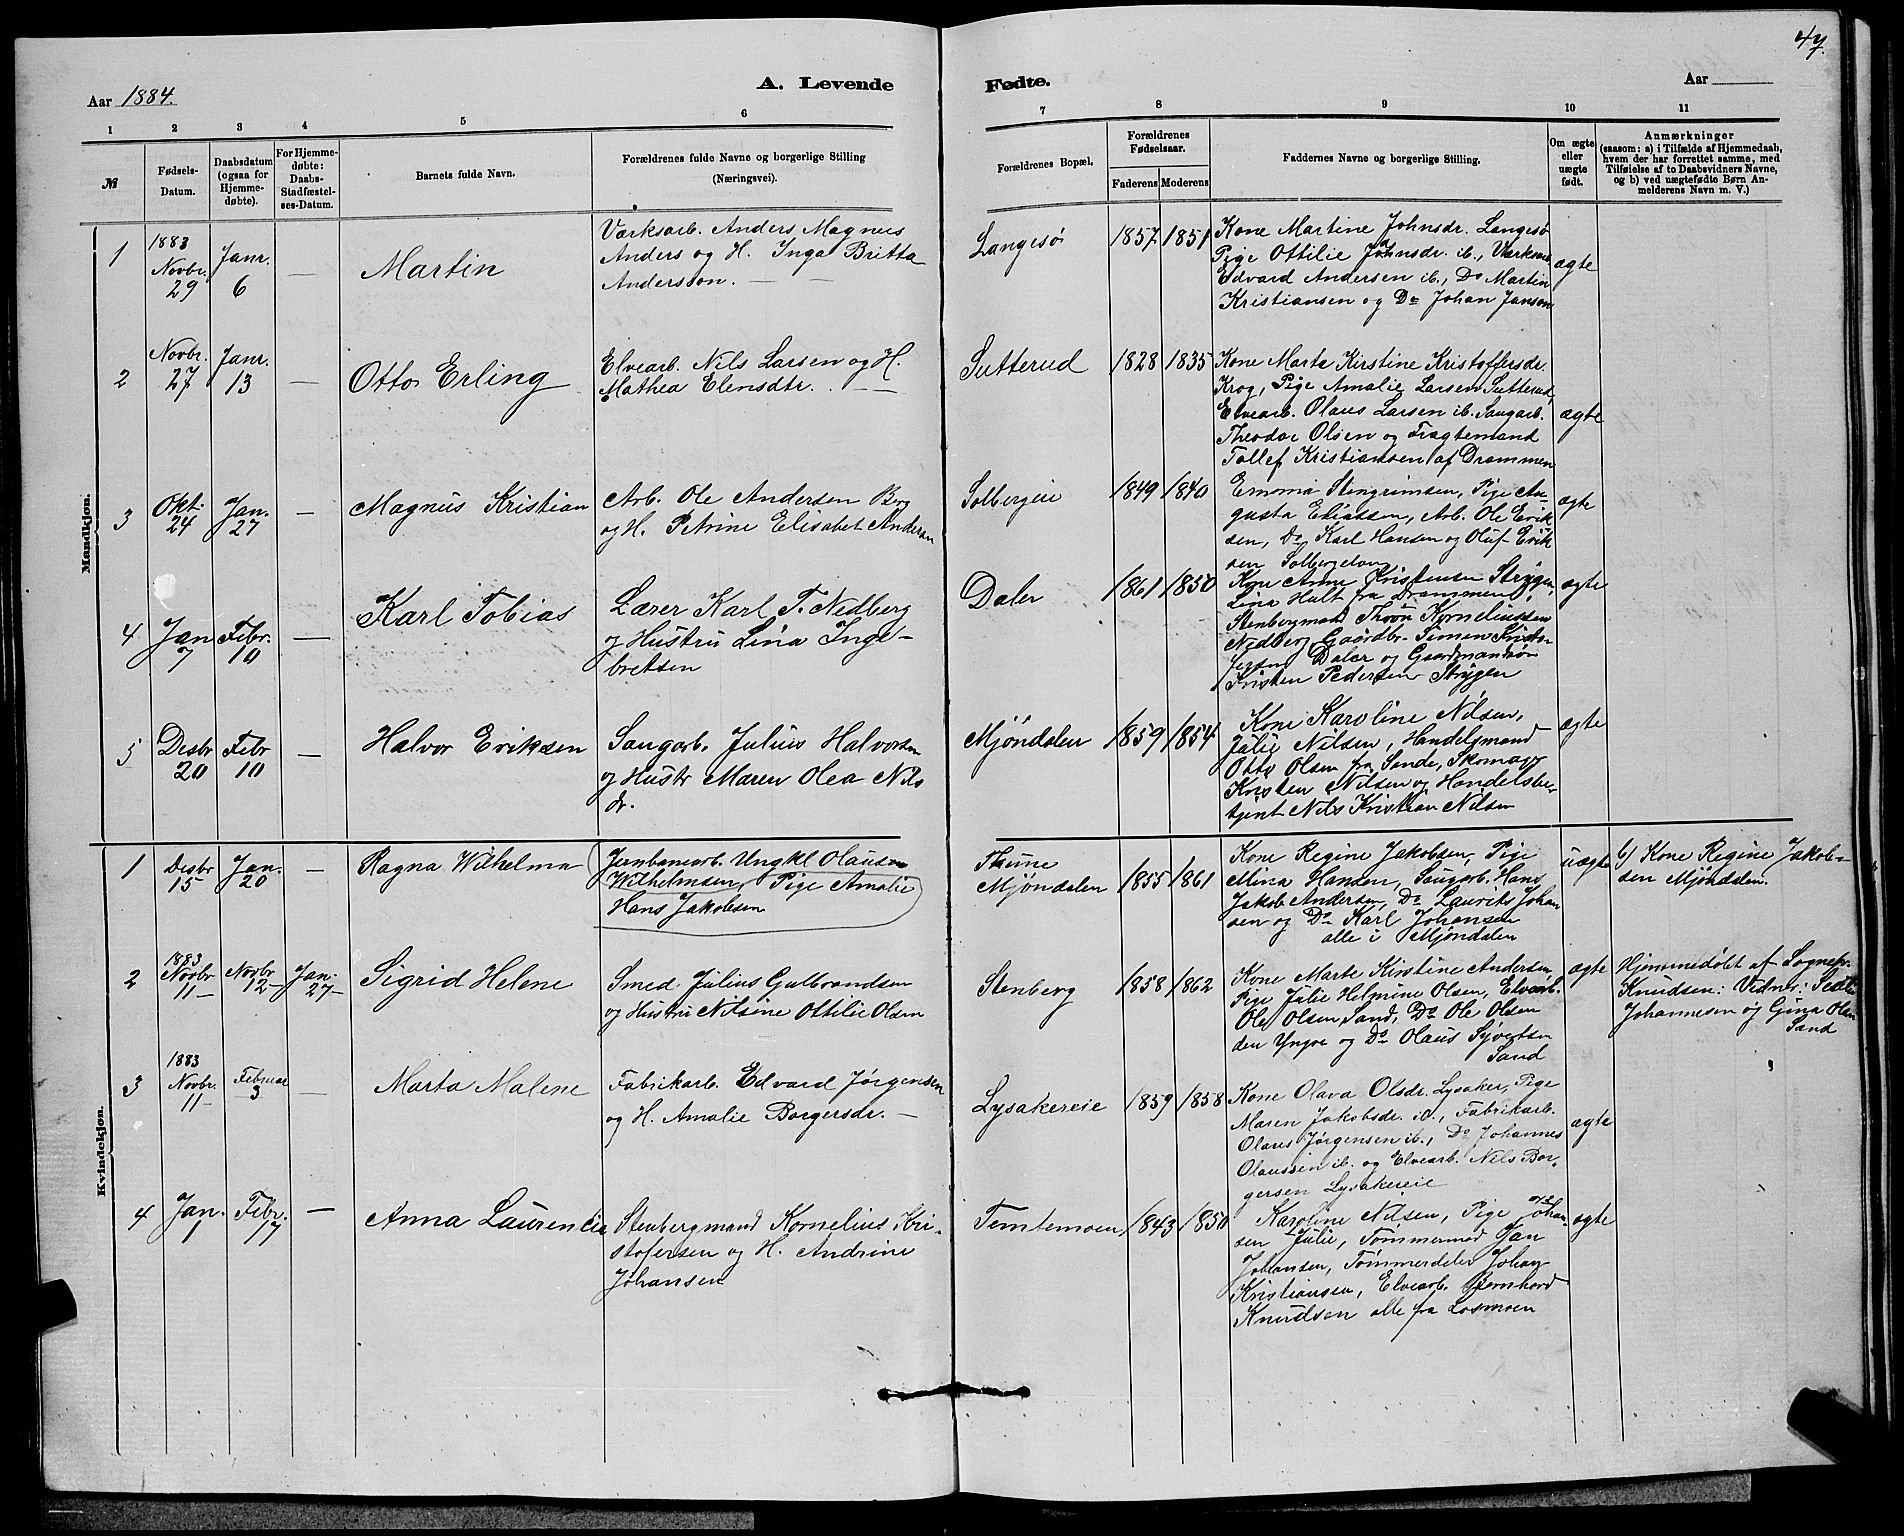 47.
Aar 1884.
A. Levende
Fødte.
Aar
1 2 3 4 5 6 7 8 9 10 11
№
Fødsels-
Datum.
Daabsdatum
(ogsaa for
Hjemme-
døbte).
For Hjemme-
døbte:
Daabs-
Stadfæstel-
ses-Datum.
Barnets fulde Navn.
Forældrenes fulde Navne og borgerlige Stilling
(Næringsvei).
Forældrenes Bopæl.
Forældrenes
Fødselsaar.
Faderens Moderens
Faddernes Navne og borgerlige Stilling.
Om ægte
eller
uægte
født.
Anmærkninger
(saasom: a) i Tilfælde af Hjemmedaab,
hvem der har forrettet samme, med
Tilføielse af to Daabsvidners Navne,
og b) ved uægtefødte Børn An-
melderens Navn m. V.)
Mandkjøn.
1
1883
Novbr.
29
Janr.
6
—
Martin
Værksarb. Anders Magnus
Anders og H. Inga Britta
Andersson. — —
Langesø
1857 1851
Kone Martine Johnsdr. Langesø
Pige Ottilie Johnsdr. ib., Værksarb.
Edvard Andersen ib., Do Martin
Kristiansen og Do Johan Janson
ægte
2
Novbr.
27
Janr.
13
—
Otto Erling
Elvearb. Nils Larsen og H.
Mathea Elensdtr. —
Sutterud
1828 1835
Kone Marte Kirstine Kristoffersdr.
Krog, Pige Amalie Larsen Sutterud,
Elvearb. Olaus Larsen ib. Saugarb.
Theodor Olsen og Fragtemand
Tollef Kristiansen af Drammen
ægte
3
Okt.
24
Jan.
27
—
Magnus Kristian
Arb. Ole Andersen Berg
og H. Petrine Elisabet Andersen
Solbergeie
1849 1840
Emma Stengrimsen, Pige Au-
gusta Eliassen, Arb. Ole Erik
sen, Do Karl Hansen og Oluf Erik
sen Solbergelven
ægte
4
Jan
7
Febr.
10
—
Karl Tobias
Lærer Karl T. Nedberg
og Hustru Lina Inge-
bretsen
Daler
1861 1850
Kone Anne Kristensen Strygen,
Lina Hult fra Drammen,
Stenbergmand Thron Korneliussen
Nedberg Gaardbr. Simen
Daler og Gaardmandsøn
Kristen Pedersen Strygen
ægte
5
Desbr
20
Febr
10
—
Halvor Eriksen
Saugarb. Julius Halvorsen
og Hustr Maren Olea Nils
dr.
Mjøndalen
1859 1854
Kone Karoline Nilsen,
Julie Nilsen, Handelsmand
Otto Olsen fra Sande, Skomager
Kristen Nilsen og Handelsbe-
tjent Nils Kristian Nilsen
ægte
Kvindekjøn.
1
Desbr
15
Jan.
20
—
Ragna Wilhelma
Jernbanearb. Ungkl Olaus
Wilhelmsen, Pige Amalie
Hans Jakobsen
Thune
Mjøndalen
1855 1861
Kone Regine Jakobsen, Pige
Mina Hansen, Saugarb. Hans
Jakob Andersen, Do Laurits Johan
sen og Do Karl Johansen
alle i Mjøndalen
uægte
b) Kone Regine Jakob-
sen Mjøndalen.
2
1883
Novbr
11 —
Novbr
12 —
Jan.
27 —
Sigrid Helene
Smed Julius Gulbrandsen
og Hustru Nilsine Ottilie Olsen
Stenberg
1858 1862
Kone Marte Kirstine Andersen
Pige Julie Helmine Olsen, Elvearb.
Ole Olsen Sand, Do Ole Olsen
den Yngre og Do Olaus Syvertsen
Sand
ægte
Hjemmedøbt af Sognepr.
Knudsen: Vidner:
Johannesen og Gina Olsen
Sand
3
1883
Novbr.
11 —
Februar
3
—
Marta Malene
Fabrikarb. Edvard Jørgensen
og H. Amalie Borgersdr. —
Lysakereie
1859 1858
Kone Olava Olsdr. Lysaker, Pige
Maren Jakobsdr. ib., Fabrikarb.
Olaus Jørgensen ib., Do Johannes
Olaussen ib. og Elvearb. Nils Bor-
gersen Lysakereie
ægte
4
Jan.
1
Febr.
17
—
Anna Laurencia
Stenbergmand Kornelius Kri-
stofersen og H. Andrine
Johansen
Temtemoen
1843 1850
Karoline Nilsen, Pige Johan-
sen Julie, Tømmermd Jan
Johansen, Tømmerdeler Johan
Kristiansen, Elvearb. Bernhard
Knudsen alle fra Losmoen
ægte